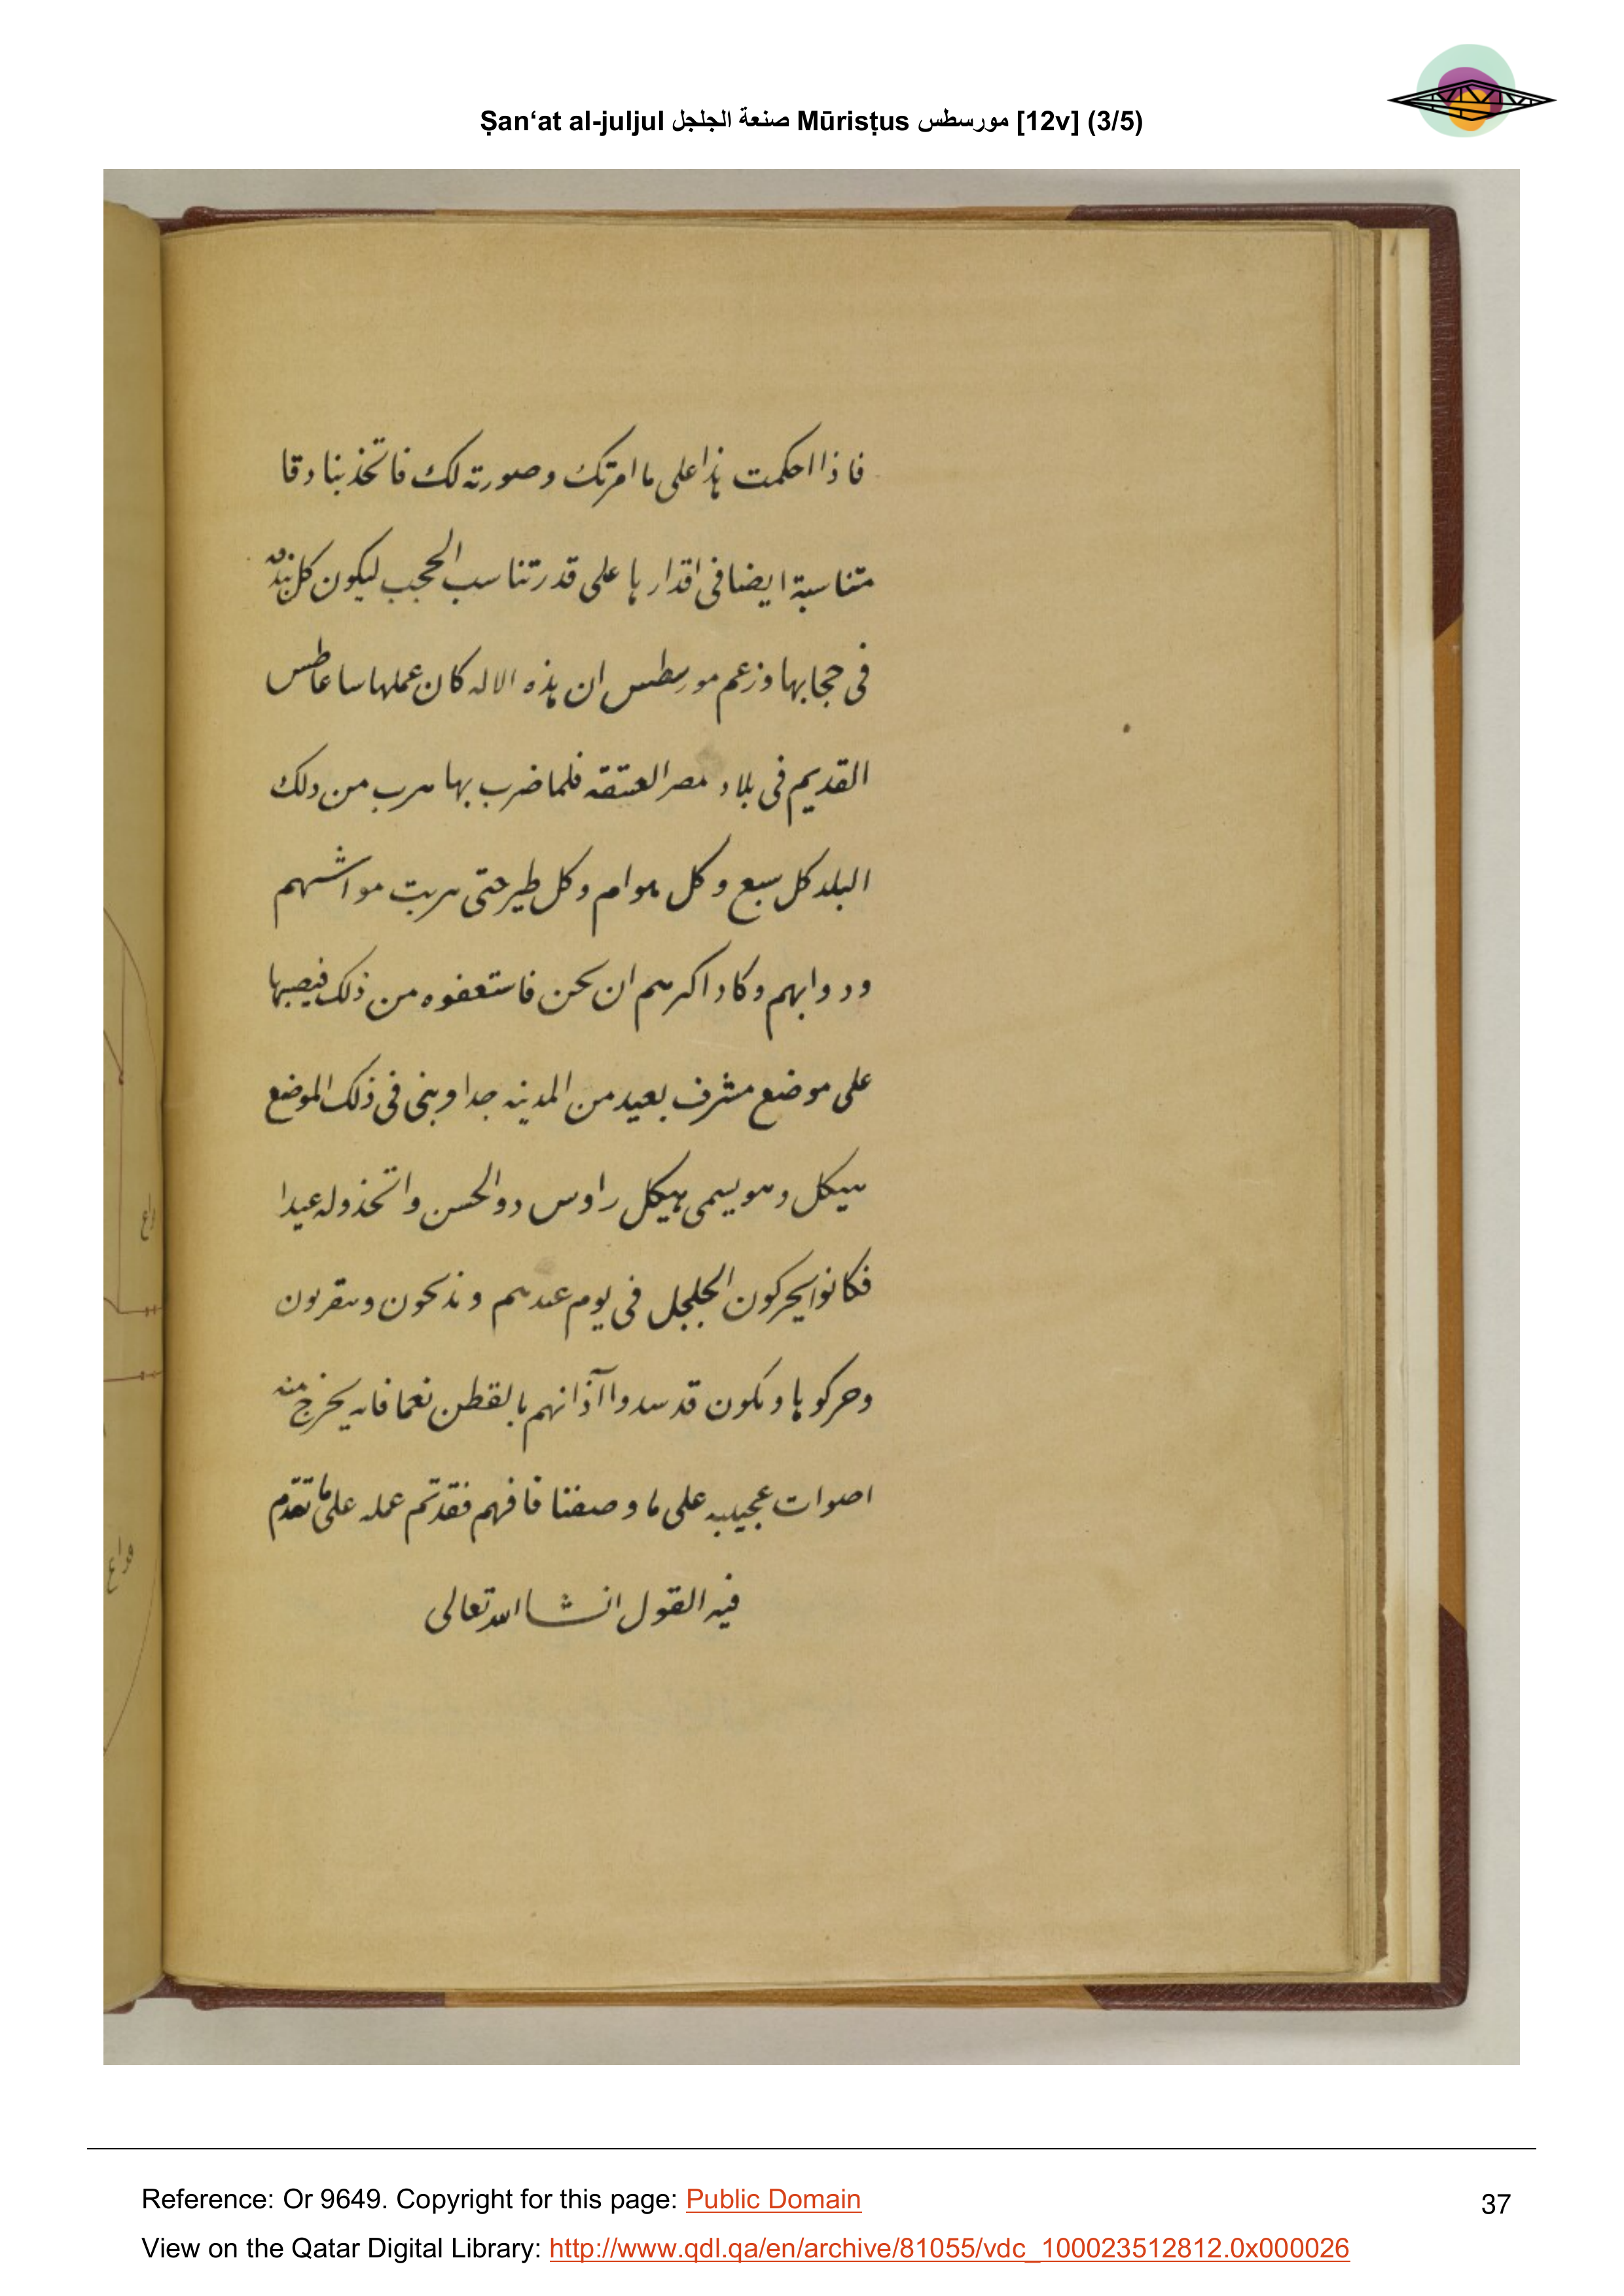 Ṣanʻat al-juljul صنعة الجلجل Mūrisṭus مورسطس [12v] (3/5)
فاذا احكمت هذا على ما امرتك وصورته لك فاتخذ بنادقا
متناسبة ايضا فى اقدارها على قدر تناسب الحجب ليكون كل بندقه
فى حجابها وزعم مورسطس ان هذه الاله كان عملها ساعاطس
القديم فى بلاد مصر العتقه فلما ضرب بها هرب من دلك
البلد كل سبع وكل هوام وكل طير حتى هربت مواشهم
ودوابهم وكاد اكرهم ان يحن فاستعفوه من ذلك فيصبها
على موضع مشرف بعيد من المدينه جدا وبنى فى ذلك الموضع
هيكل وهو يسمى هيكل راوس دوالحسن واتخذوله عيدا
فكانوا يحركون الجلجل فى يوم عيدهم ويذبحون ويتقربون
وحركوها ويكون قد سدوا آذانهم بالقطن نعما فانه يخرج منه
اصوات عجيبه على ما وصفنا فافهم فقد تم عمله على ما تقدم
فيه القول انشا الله تعالى
داع
Reference: Or 9649. Copyright for this page: Public Domain
37
View on the Qatar Digital Library: http://www.qdl.qa/en/archive/81055/vdc_100023512812.0x000026